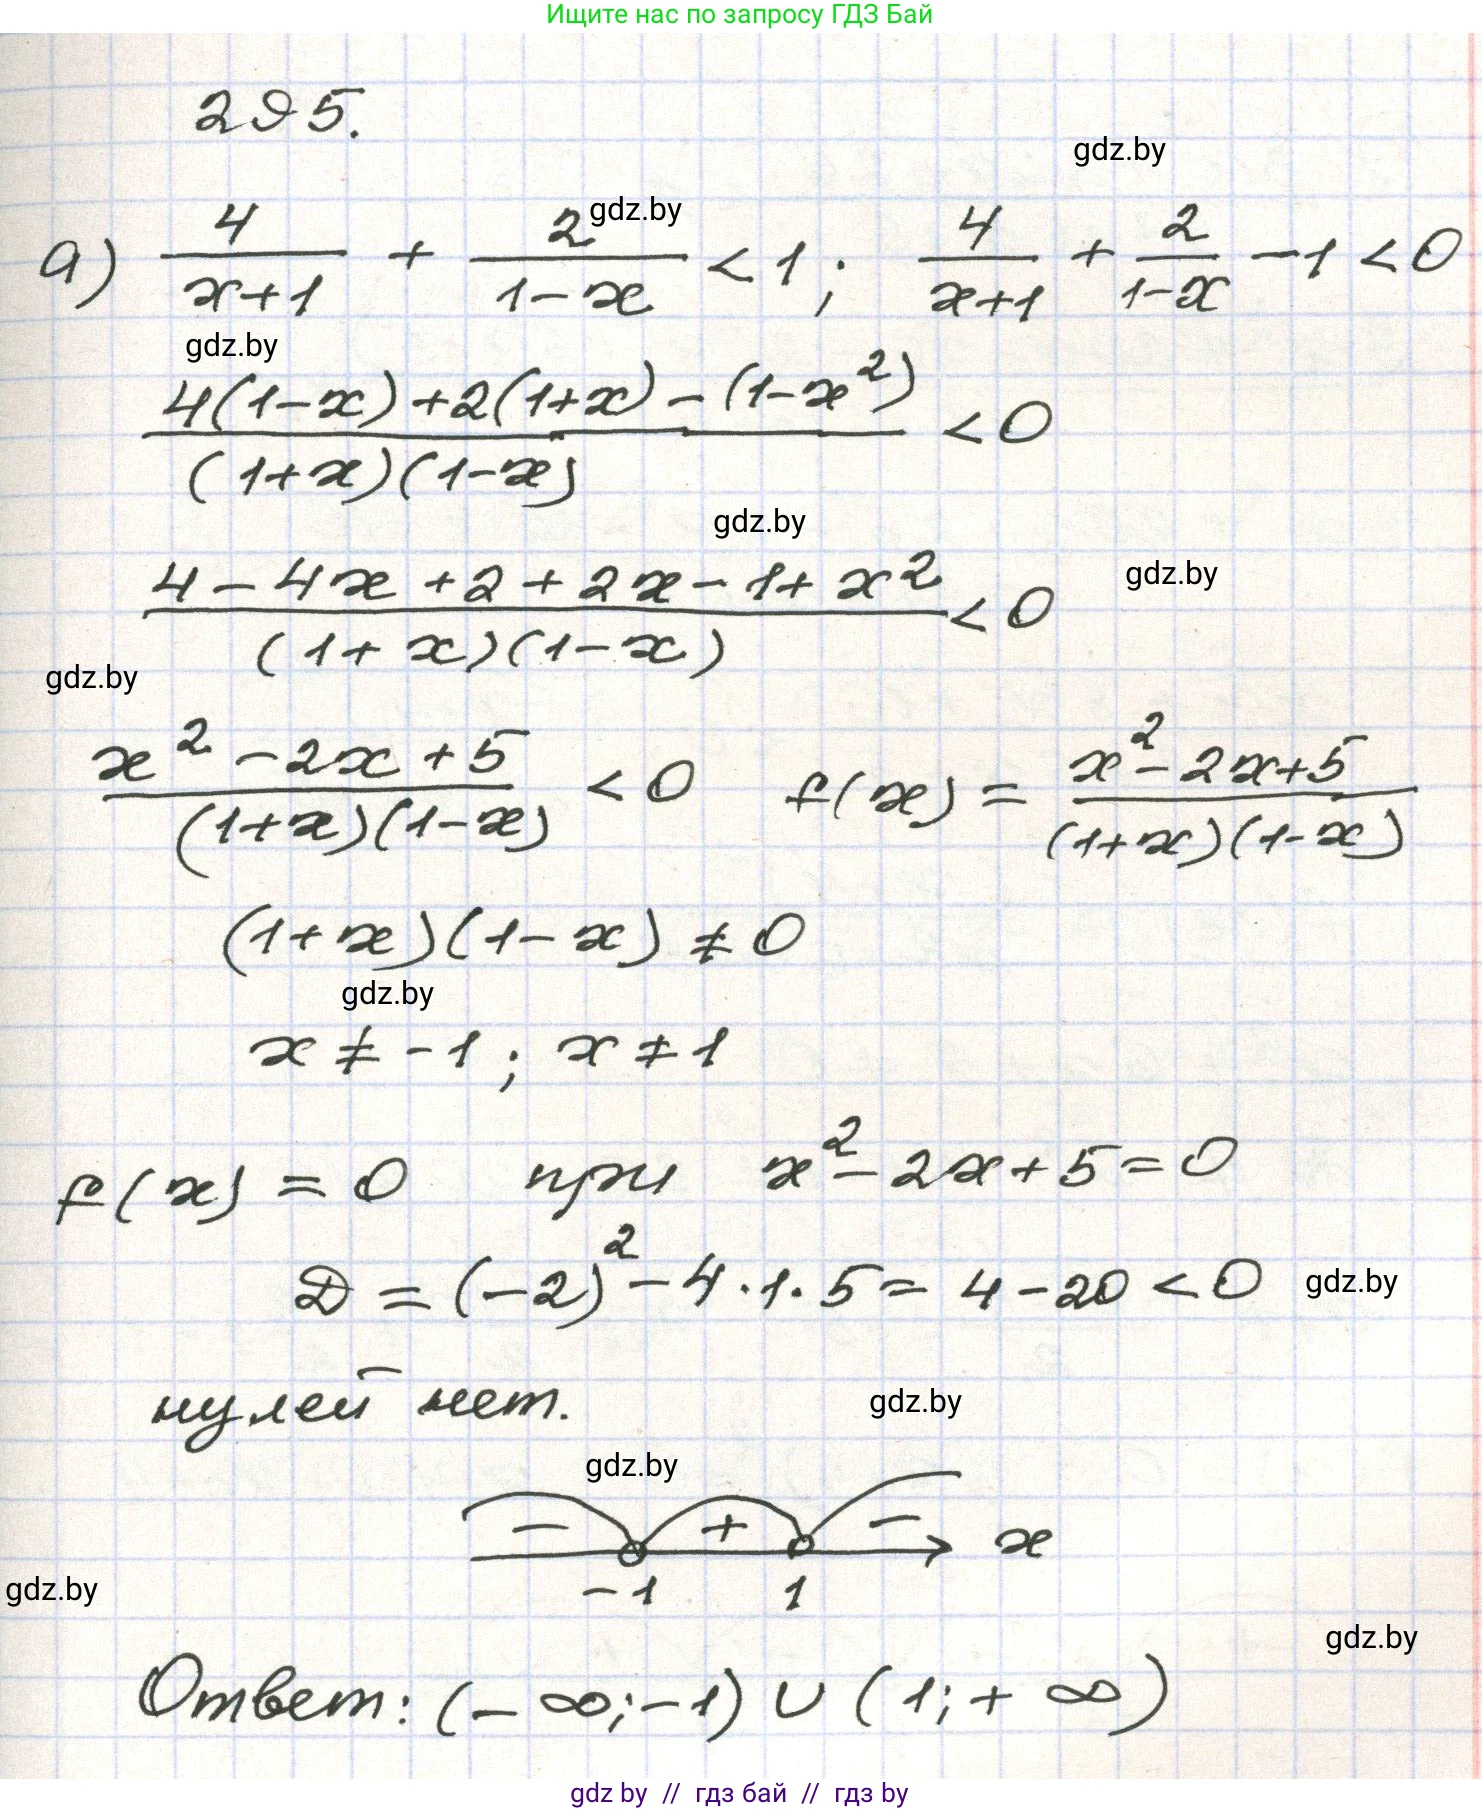 Ищите нас по запросу ГДЗ Бай
295.
gdz.by
а) 4/(x+1) + 2/(1-x) < 1; 4/(x+1) + 2/(1-x) - 1 < 0
gdz.by
gdz.by
(4(1-x)+2(1+x)-(1-x²))/((1+x)(1-x)) < 0
gdz.by
(4-4x+2+2x-1+x²)/((1+x)(1-x)) < 0
gdz.by
gdz.by
(x²-2x+5)/((1+x)(1-x)) < 0 f(x) = (x²-2x+5)/((1+x)(1-x))
(1+x)(1-x) ≠ 0
gdz.by
x ≠ -1; x ≠ 1
f(x) = 0 при x²-2x+5=0
D = (-2)²-4·1·5 = 4-20 < 0
gdz.by
нулей нет.
gdz.by
gdz.by
- + - x
-1 1
gdz.by
gdz.by
Ответ: (-∞;-1) ∪ (1;+∞)
gdz by // гдз бай // гдз by